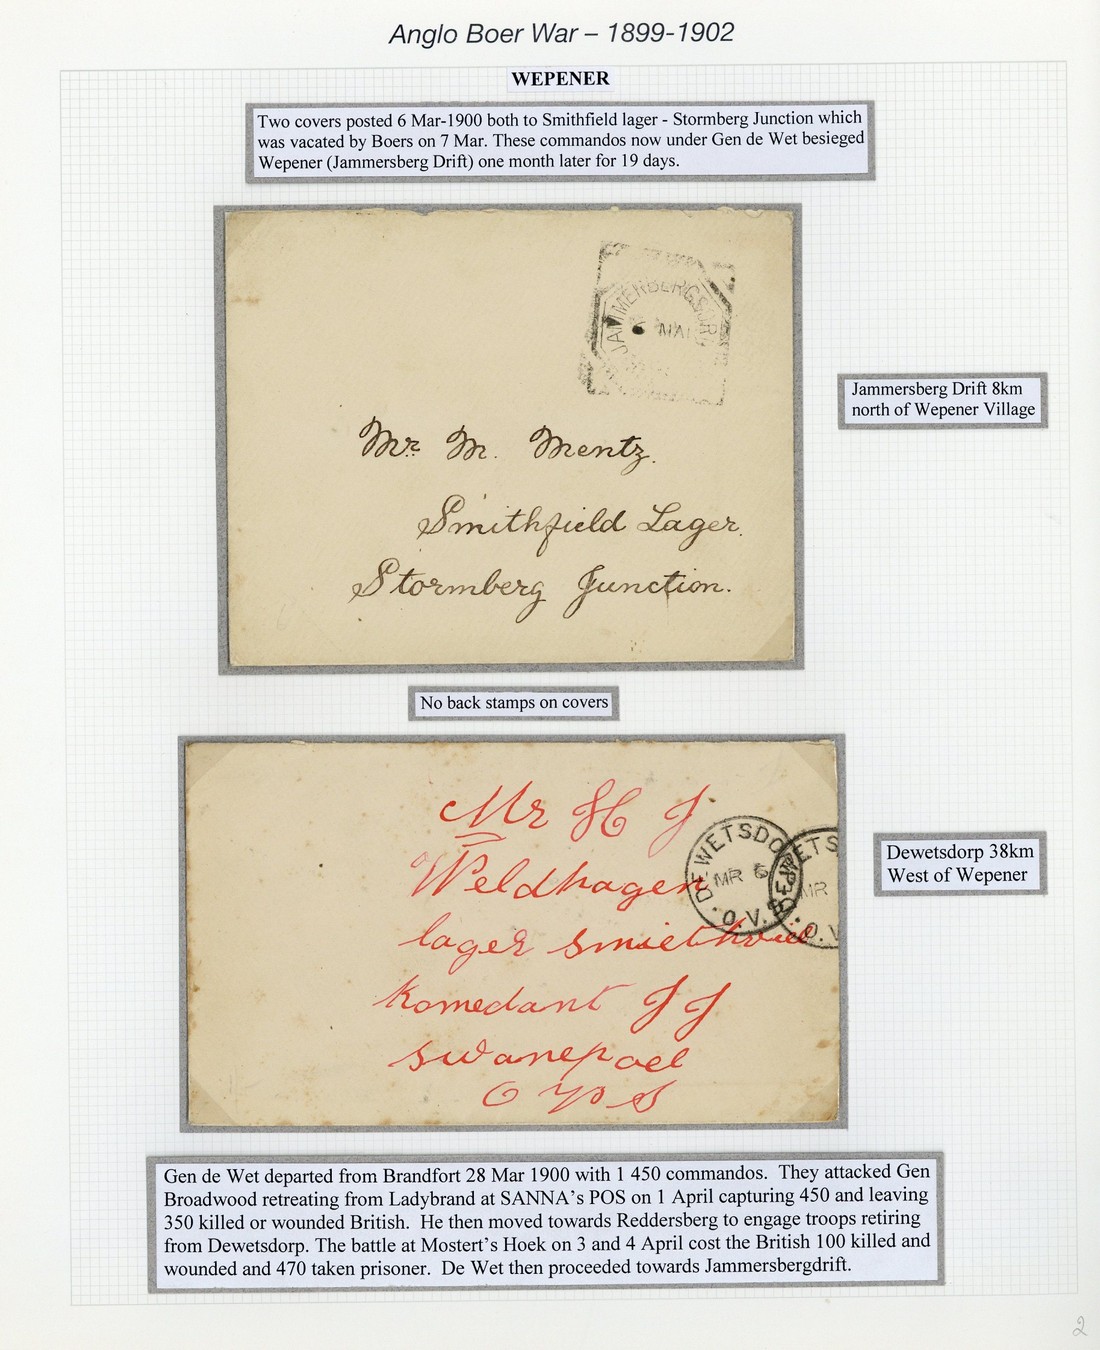 Anglo Boer War – 1899-1902
WEPENER
Two covers posted 6 Mar-1900 both to Smithfield lager - Stormberg Junction which
was vacated by Boers on 7 Mar. These commandos now under Gen de Wet besieged
Wepener (Jammersberg Drift) one month later for 19 days.
JAMMERBERGSDRI
6 MAR
Jammersberg Drift 8km
north of Wepener Village
Mr. M. Mentz.
Smithfield Lager.
Stormberg Junction.
No back stamps on covers
Mr H J
Weldhagen
lager smiethvill
Komedant J J
swanepoel
O V S
DEWETSDORP
MR 6
O.V.S.
ETS
MR
O.V
Dewetsdorp 38km
West of Wepener
Gen de Wet departed from Brandfort 28 Mar 1900 with 1 450 commandos. They attacked Gen
Broadwood retreating from Ladybrand at SANNA's POS on 1 April capturing 450 and leaving
350 killed or wounded British. He then moved towards Reddersberg to engage troops retiring
from Dewetsdorp. The battle at Mostert's Hoek on 3 and 4 April cost the British 100 killed and
wounded and 470 taken prisoner. De Wet then proceeded towards Jammersbergdrift.
2